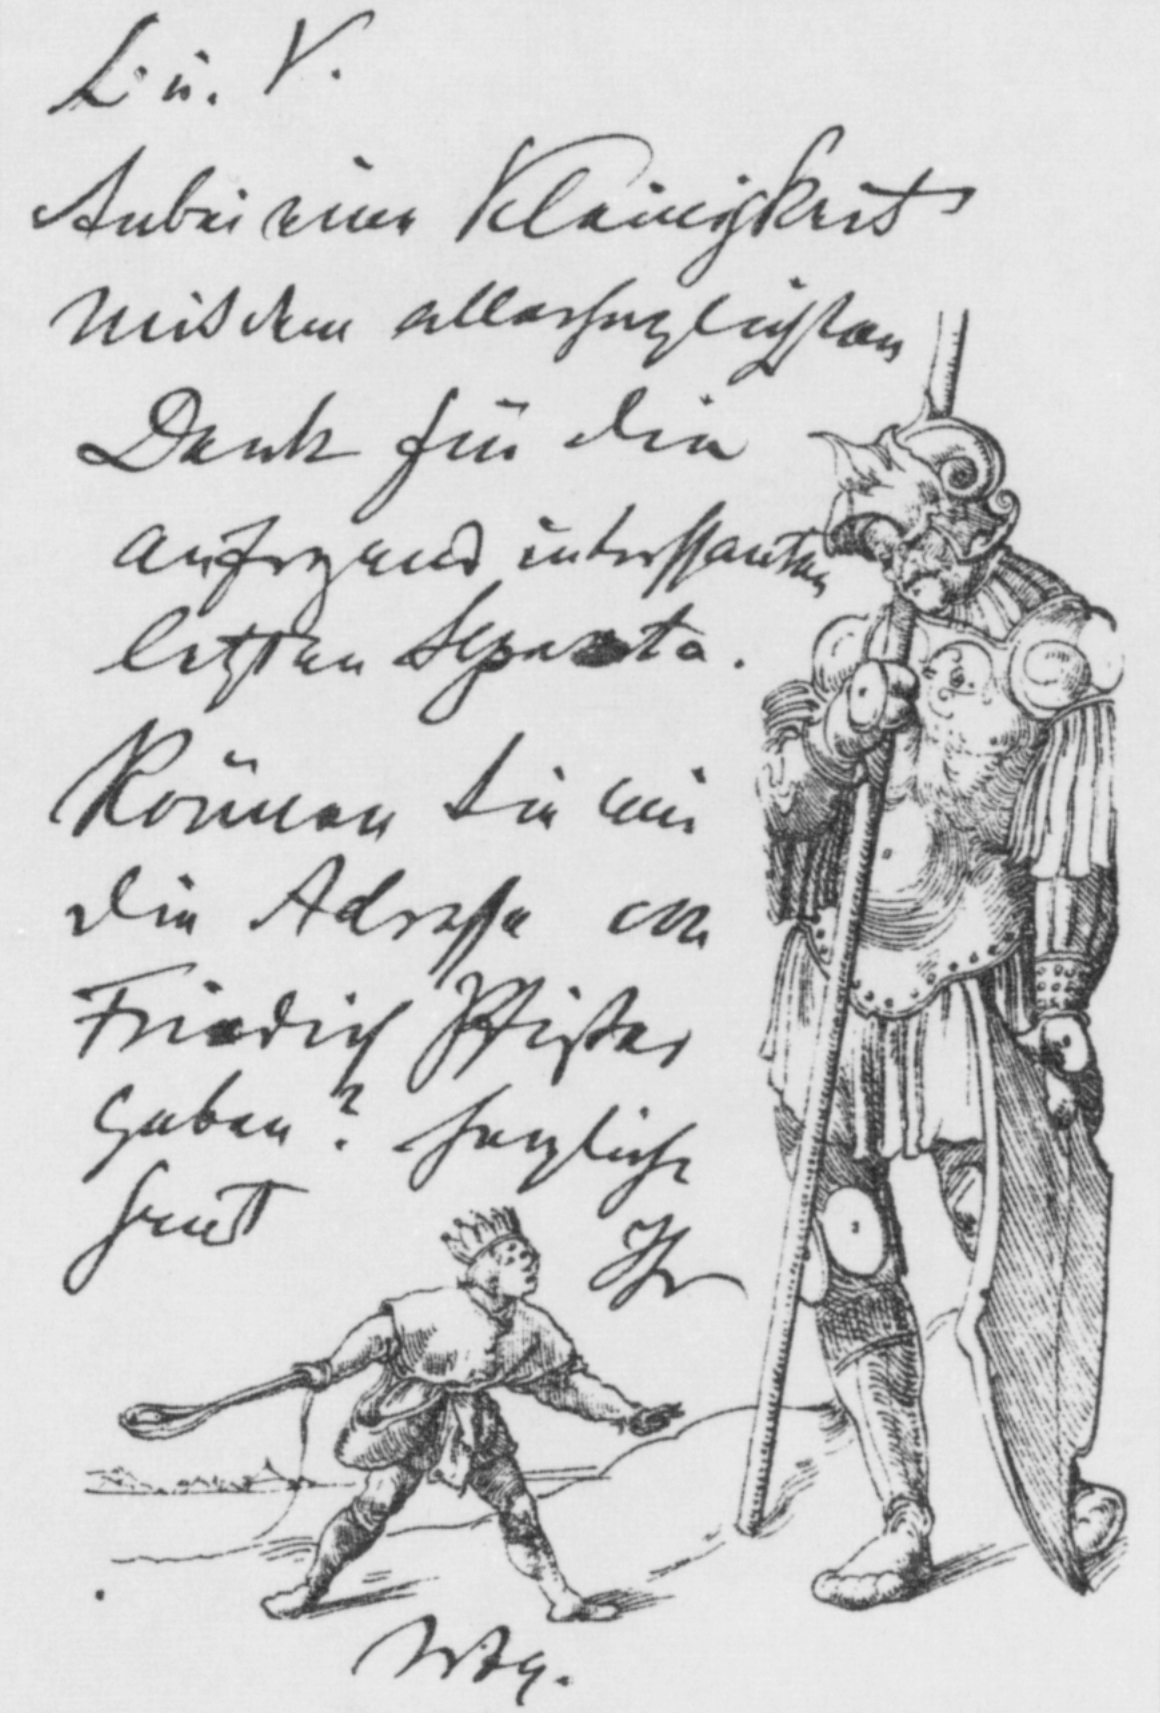 L. u. V.
Anbei eine Kleinigkeit
Mit dem allerherzlichsten
Dank für die
aufregend interessanten
letzten Separata.
Können Sie mir
die Adresse von
Friedrich Pfister
geben? Herzliche
Grüße
Ihr